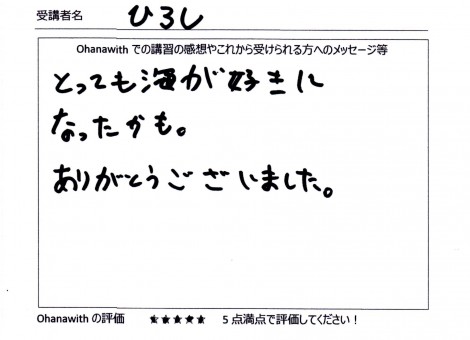 受講者名 ひろし
Ohanawith での講習の感想やこれから受けられる方へのメッセージ等
とっても海が好きに
なったかも。
ありがとうございました。
Ohanawith の評価 ★★★★★ 5点満点で評価してください！